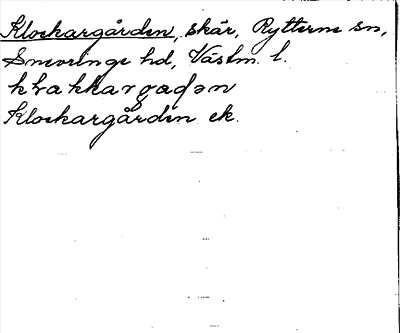 Klockargården, skär, Rytterne sn,
Snevringe hd, Västm. l.
Klockargården ek.